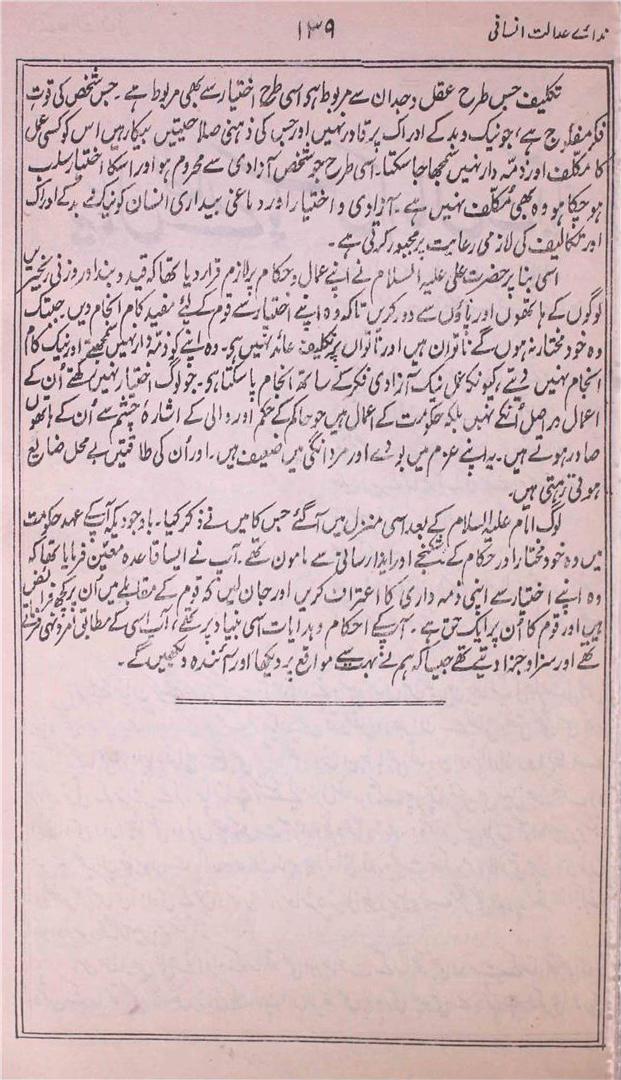 ندائے عدالت انسانی
۱۳۹
تکلیف جس طرح عقل و وجدان سے مربوط ہو اسی طرح اختیار سے بھی مربوط ہے۔ جس شخص کی قوت
فکر مفلوج ہے، جو نیک و بد کے ادراک پر قادر نہیں اور جس کی ذہنی صلاحیتیں بیکار ہیں اس کو کسی عمل
کا مکلف اور ذمہ دار نہیں سمجھا جا سکتا۔ اسی طرح جو شخص آزادی سے محروم ہو اور اسکا اختیار سلب
ہو چکا ہو وہ بھی مُکلف نہیں ہے۔ آزادی و اختیار اور دماغی بیداری انسان کو نیک و بد کے ادراک
اور تکالیف کی لازمی رعایت پر مجبور کرتی ہے۔
اسی بنا پر حضرت علی علیہ السلام نے اپنے عمال و حکام پر لازم قرار دیا تھا کہ قید و بند اور وزنی زنجیریں
لوگوں کے ہاتھوں اور پاؤں سے دور کریں تاکہ وہ اپنے اختیار سے قوم کے لئے مفید کام انجام دیں۔ جبتک
وہ خود مختار نہ ہوں گے ناتواں ہیں اور ناتواں پر تکلیف عائد نہیں ہو۔ وہ اپنے کو ذمہ دار نہیں سمجھتے اور نیک کام
انجام نہیں دیتے، کیونکہ عمل نیک آزادی فکر کے ساتھ انجام پا سکتا ہو۔ جو لوگ اختیار نہیں رکھتے اُن کے
اعمال دراصل اُنکے نہیں بلکہ حکومت کے اعمال ہیں جو حاکم کے حکم اور والی کے اشارۂ چشم سے اُن کے ہاتھوں
صادر ہوتے ہیں۔ یہ اپنے عزم میں بودے اور مردانگی میں ضعیف ہیں۔ اور اُن کی طاقتیں بے محل ضایع
ہوتی رہتی ہیں۔
لوگ امام علیہ السلام کے بعد اسی منزل میں آ گئے جس کا میں نے ذکر کیا۔ باوجودیکہ آپکے عہد حکومت
میں وہ خود مختار اور حکام کے شکنجے اور ایذا رسانی سے مامون تھے۔ آپ نے ایسا قاعدہ معین فرمایا تھا کہ
وہ اپنے اختیار سے اپنی ذمہ داری کا اعتراف کریں اور جان لیں کہ قوم کے مقابلے میں اُن پر کچھ فرائض
ہیں اور قوم کا اُن پر ایک حق ہے۔ آپکے احکام و ہدایات اسی بنیاد پر تھے، آپ اسی کے مطابق امر و نہی فرماتے
تھے اور سزا و جزا دیتے تھے جیسا کہ ہم نے بہت سے مواقع پر دیکھا اور آئندہ دیکھیں گے۔